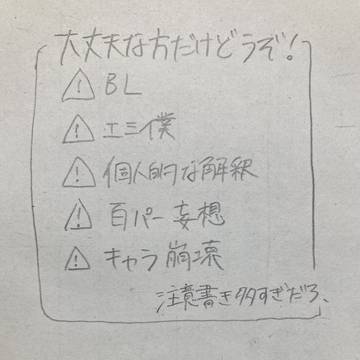 大丈夫な方だけどうぞ!
⚠ BL
⚠ エミ僕
⚠ 個人的な解釈
⚠ 百パー妄想
⚠ キャラ崩壊
注意書き多すぎだろ、